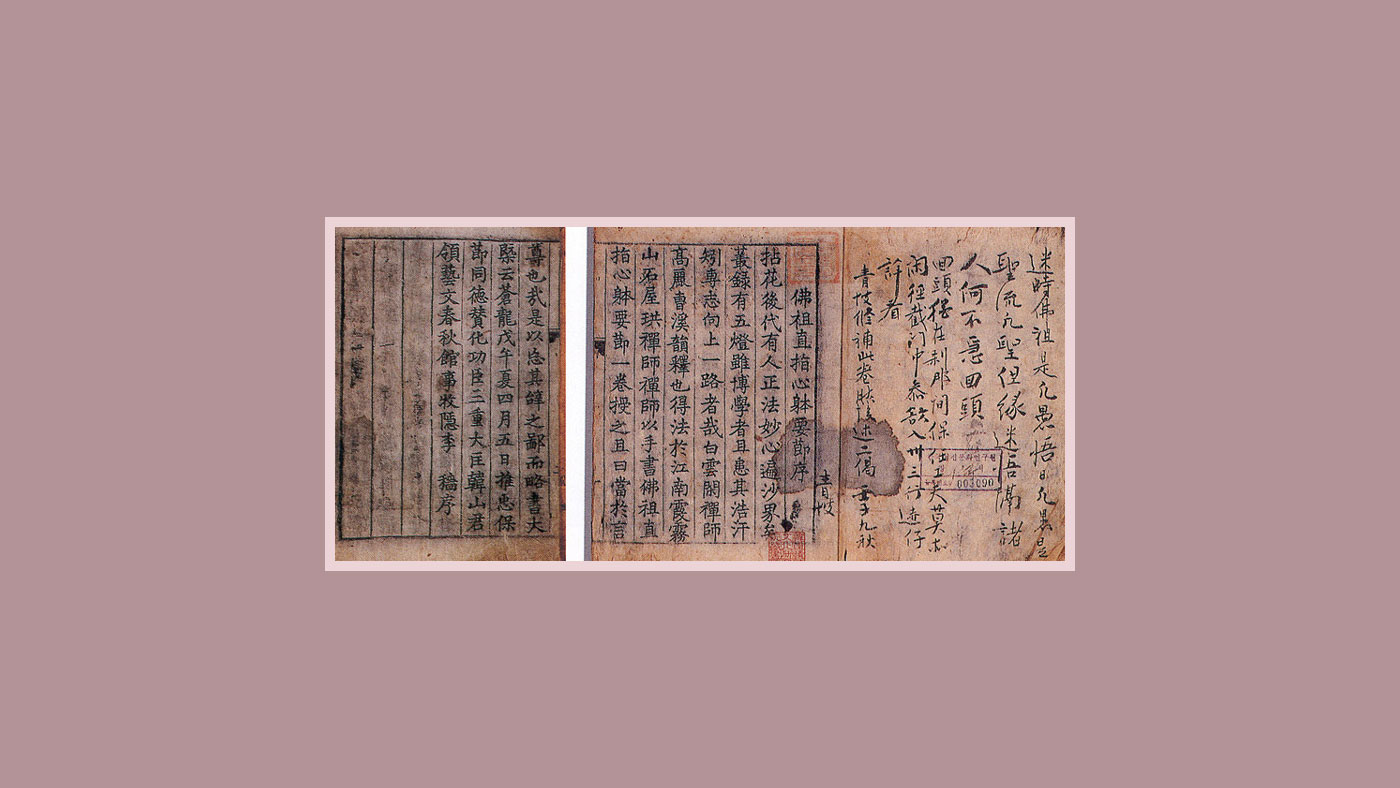 迷時佛祖是凡愚悟
聖流凡聖但緣迷悟滿諸
人何不急回頭
回頭在刹那間保任工夫莫
閑徑截門中叅入卅三行迹仔
許着
青岐修補此卷述二偈 壬子九秋
青岐
003090
佛祖直指心躰要莭序
拈花後代有人正法妙心遍沙界矣
叢録有五燈雖博學者且患其浩汗
矧專志向上一路者哉白雲閣禪師
髙麗曺溪韻釋也得法於江南霞霧
山石屋珙禪師禪師以手書佛祖直
指心躰要莭一卷授之且曰當於言
尊也哉是以忘其辭之鄙而略書大
槩云蒼龍戊午夏四月五日推忠保
莭同德賛化功臣三重大匡韓山君
領藝文春秋館事牧隱李 穡序